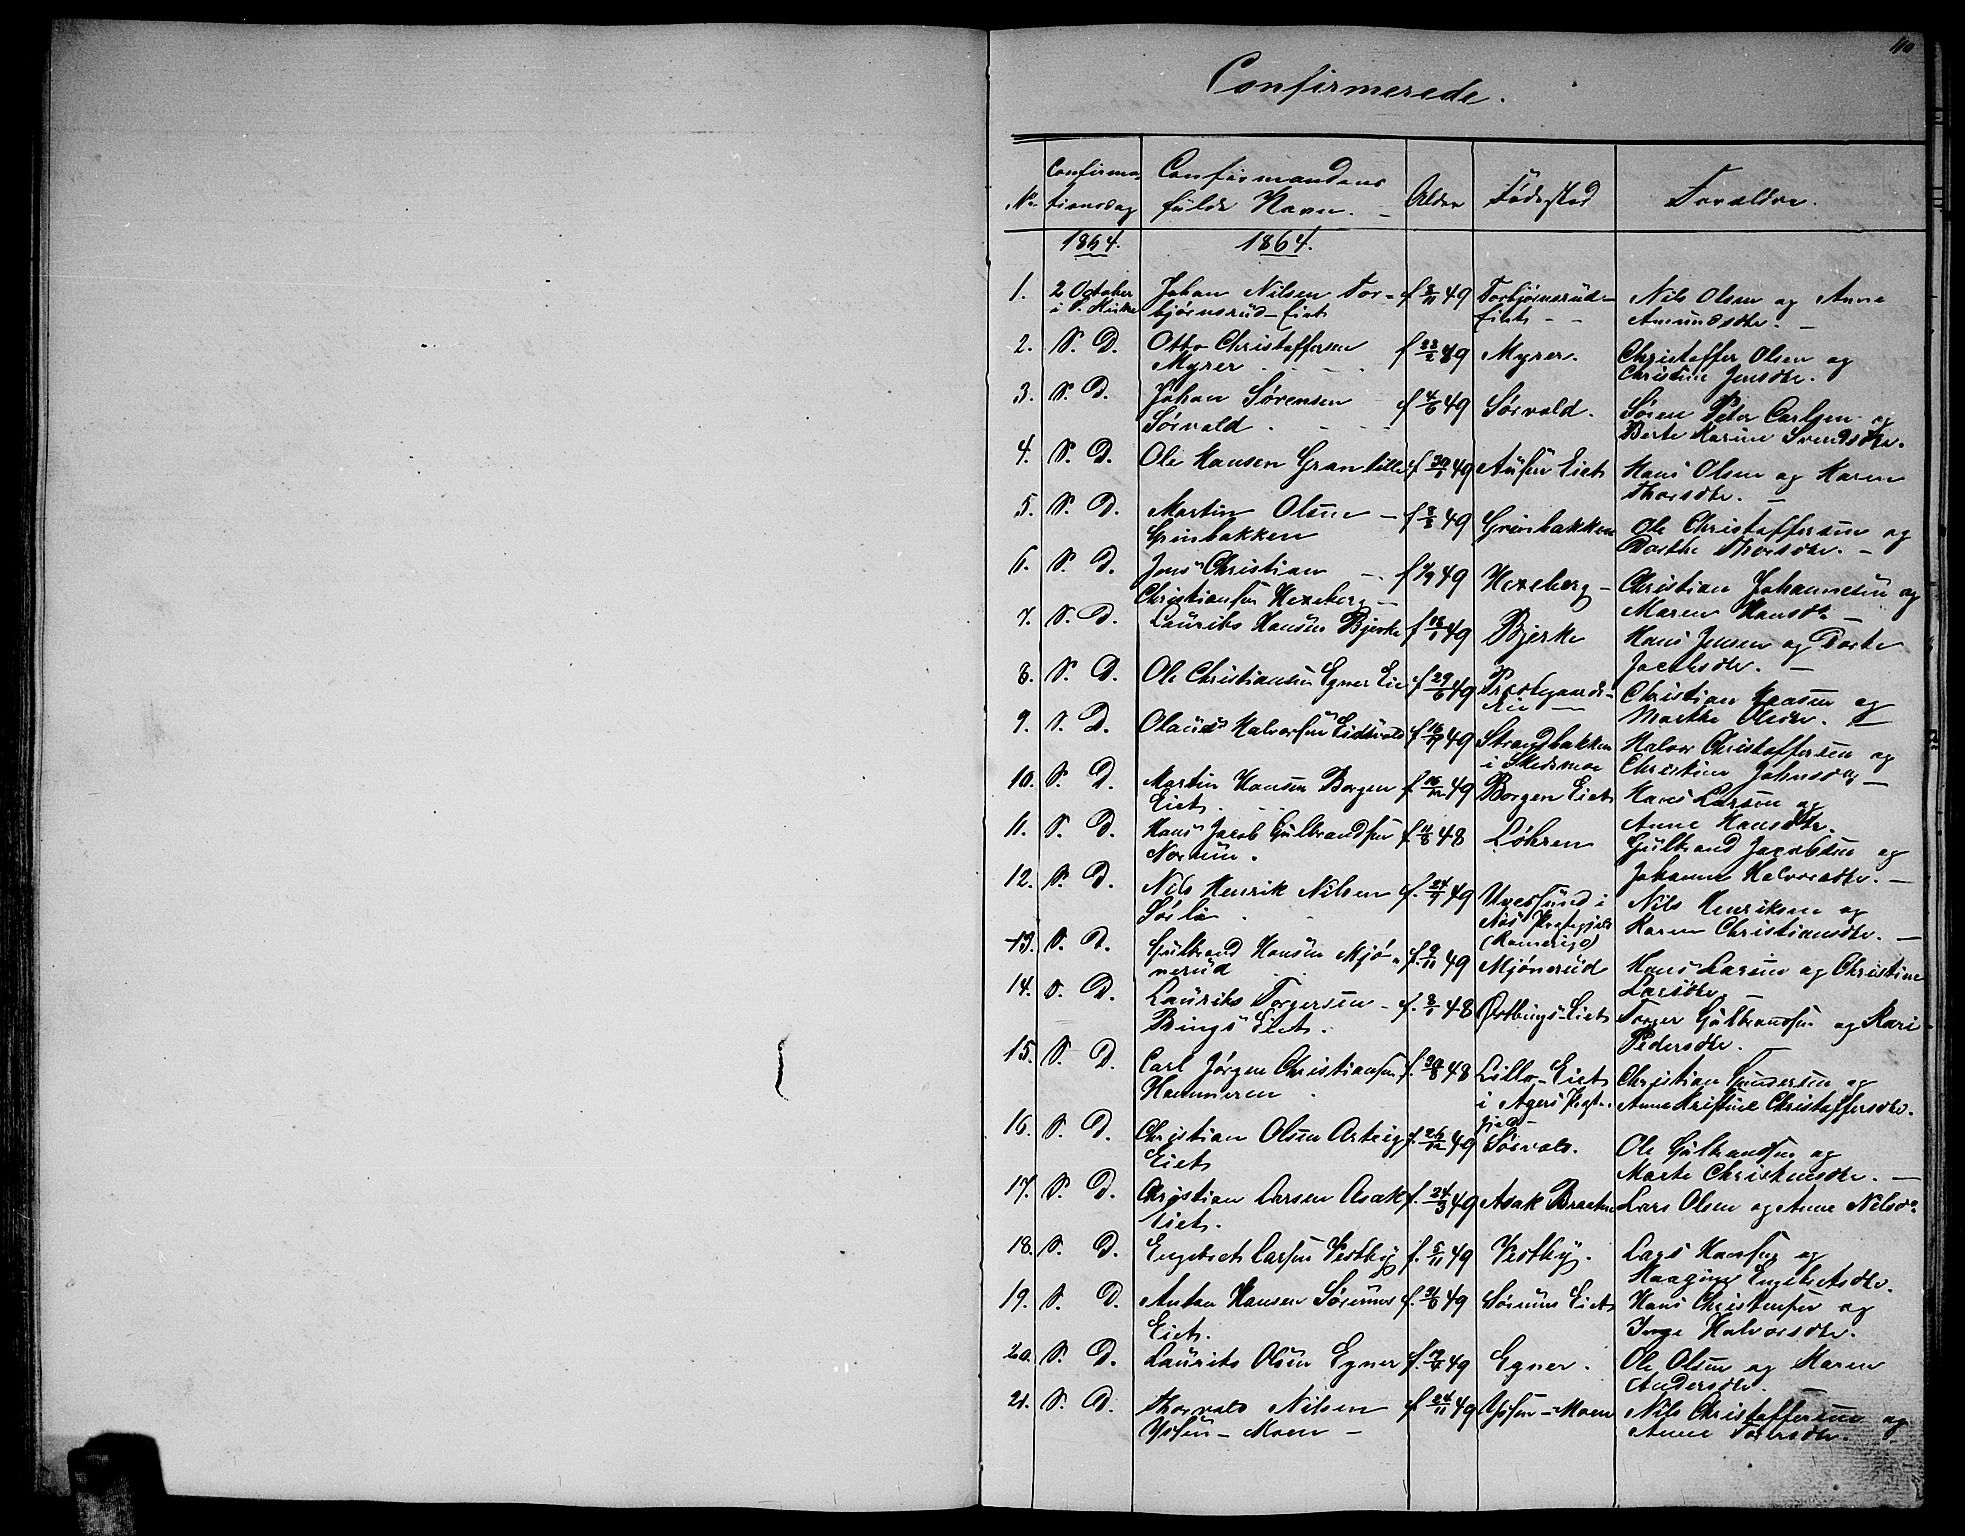 110
Confirmerede.
No. Confirmationsdag Confirmandens fulde Navn. Alder Fødested Forældre.
1864. 1864.
1. 2 October i S. Kirke Johan Nilsen Torbjørnsrud-Eiet f 49 Torbjørnsrud-Eiet Nils Olsen og Anne Amundsdtr.
2. S. D. Otto Christoffersen Myrer f 22/2 49 Myrer. Christoffer Olsen og Christine Jensdtr.
3. S. D. Johan Sørensen Sørvald f 4/6 49 Sørvald. Søren Peter Carlsen og Berte Karine Svendsdtr.
4. S. D. Ole Hansen Granlille f 49 Eiet Hans Olsen og Karen Thorsdtr.
5. S. D. Martin Olsen Grinbakken f 49 Grinbakken Ole Christoffersen og Dorthe Thorsdtr.
6. S. D. Jens Christian Christiansen Hexeberg f 1/9 49 Hexeberg Christian Johannesen og Maren Hansdtr
7. S. D. Laurits Hansen Bjerke f 49 Bjerke Hans Jensen og Dorte Jacobsdtr.
8. S. D. Ole Christiansen Egner Eie f 29/6 49 Præstegaards-Eie Christian Hansen og Marthe Olsdtr.
9. S. D. Olaus Halvorsen Eidsvold f 49 Strandbakken i Skedsmoe Halvor Christoffersen og Christine Johnsdtr
10. S. D. Martin Hansen Borgen Eiet. f 49 Borgen Eiet Hans Larsen og Anne Hansdtr.
11. S. D. Hans Jacob Gulbrandsen f 48 Løhren Gulbrand Jacobsen og Johanne Halvorsdtr.
12. S. D. Nils Henrik Nilsen Sørli f. 49 i Næs Prstgjeld (Romerige) Nils Henriksen og Karen Christiansdtr.
13. S. D. Gulbrand Hansen Mjønerud f. 9/11 49 Mjønerud Hans Larsen og Christine Larsdtr
14. S. D. Laurits Torgersen Bings Eiet. f. 48 Østbings-Eiet Torger Gulbrandsen og Kari Pedersdtr.
15. S. D. Carl Jørgen Christiansen Hammeren f. 30/8 48 Lillo-Eiet i Agers Prgt.gjeld Christian Gundersen og Anne Kristine Christoffersdtr.
16. S. D. Christian Olsen Arteig Eiet f. 26/12 49 Sørvald. Ole Gulbrandsen og Marte Christensdtr.
17. S. D. Christian Larsen Asak Eiet. f. 24/3 49 Asak Braaten Lars Olsen og Anne Nilsd.
18. S. D. Engebret Larsen Vestby f. 5/11 49 Vestby. Lars Hansen og Engebretsdtr.
19. S. D. Anton Hansen Sørums Eiet. f. 49 Sørums Eiet Hans Christensen og Inge Halvorsdtr.
20. S. D. Laurits Olsen Egner f. 49 Egner. Ole Olsen og Maren Andersdtr.
21. S. D. Thorvald Nilsen Yssen-Moen f 24/11 49 Yssen-Moen Nils Christoffersen og Anne